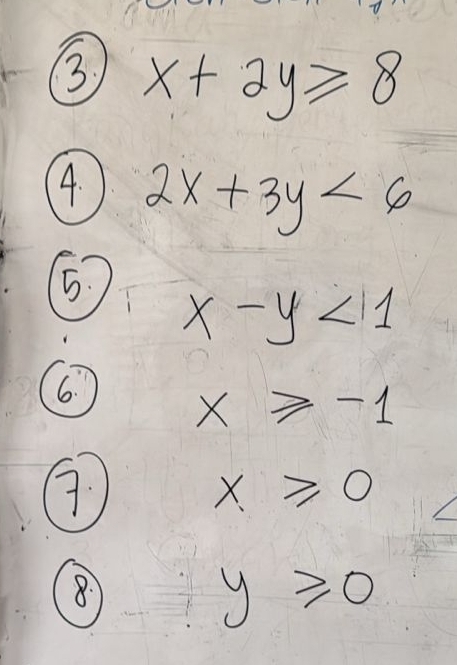 ③ x + 2y ⩾ 8
④ 2x + 3y < 6
⑤ x - y < 1
⑥ x ⩾ -1
⑦ x ⩾ 0
⑧ y ⩾ 0